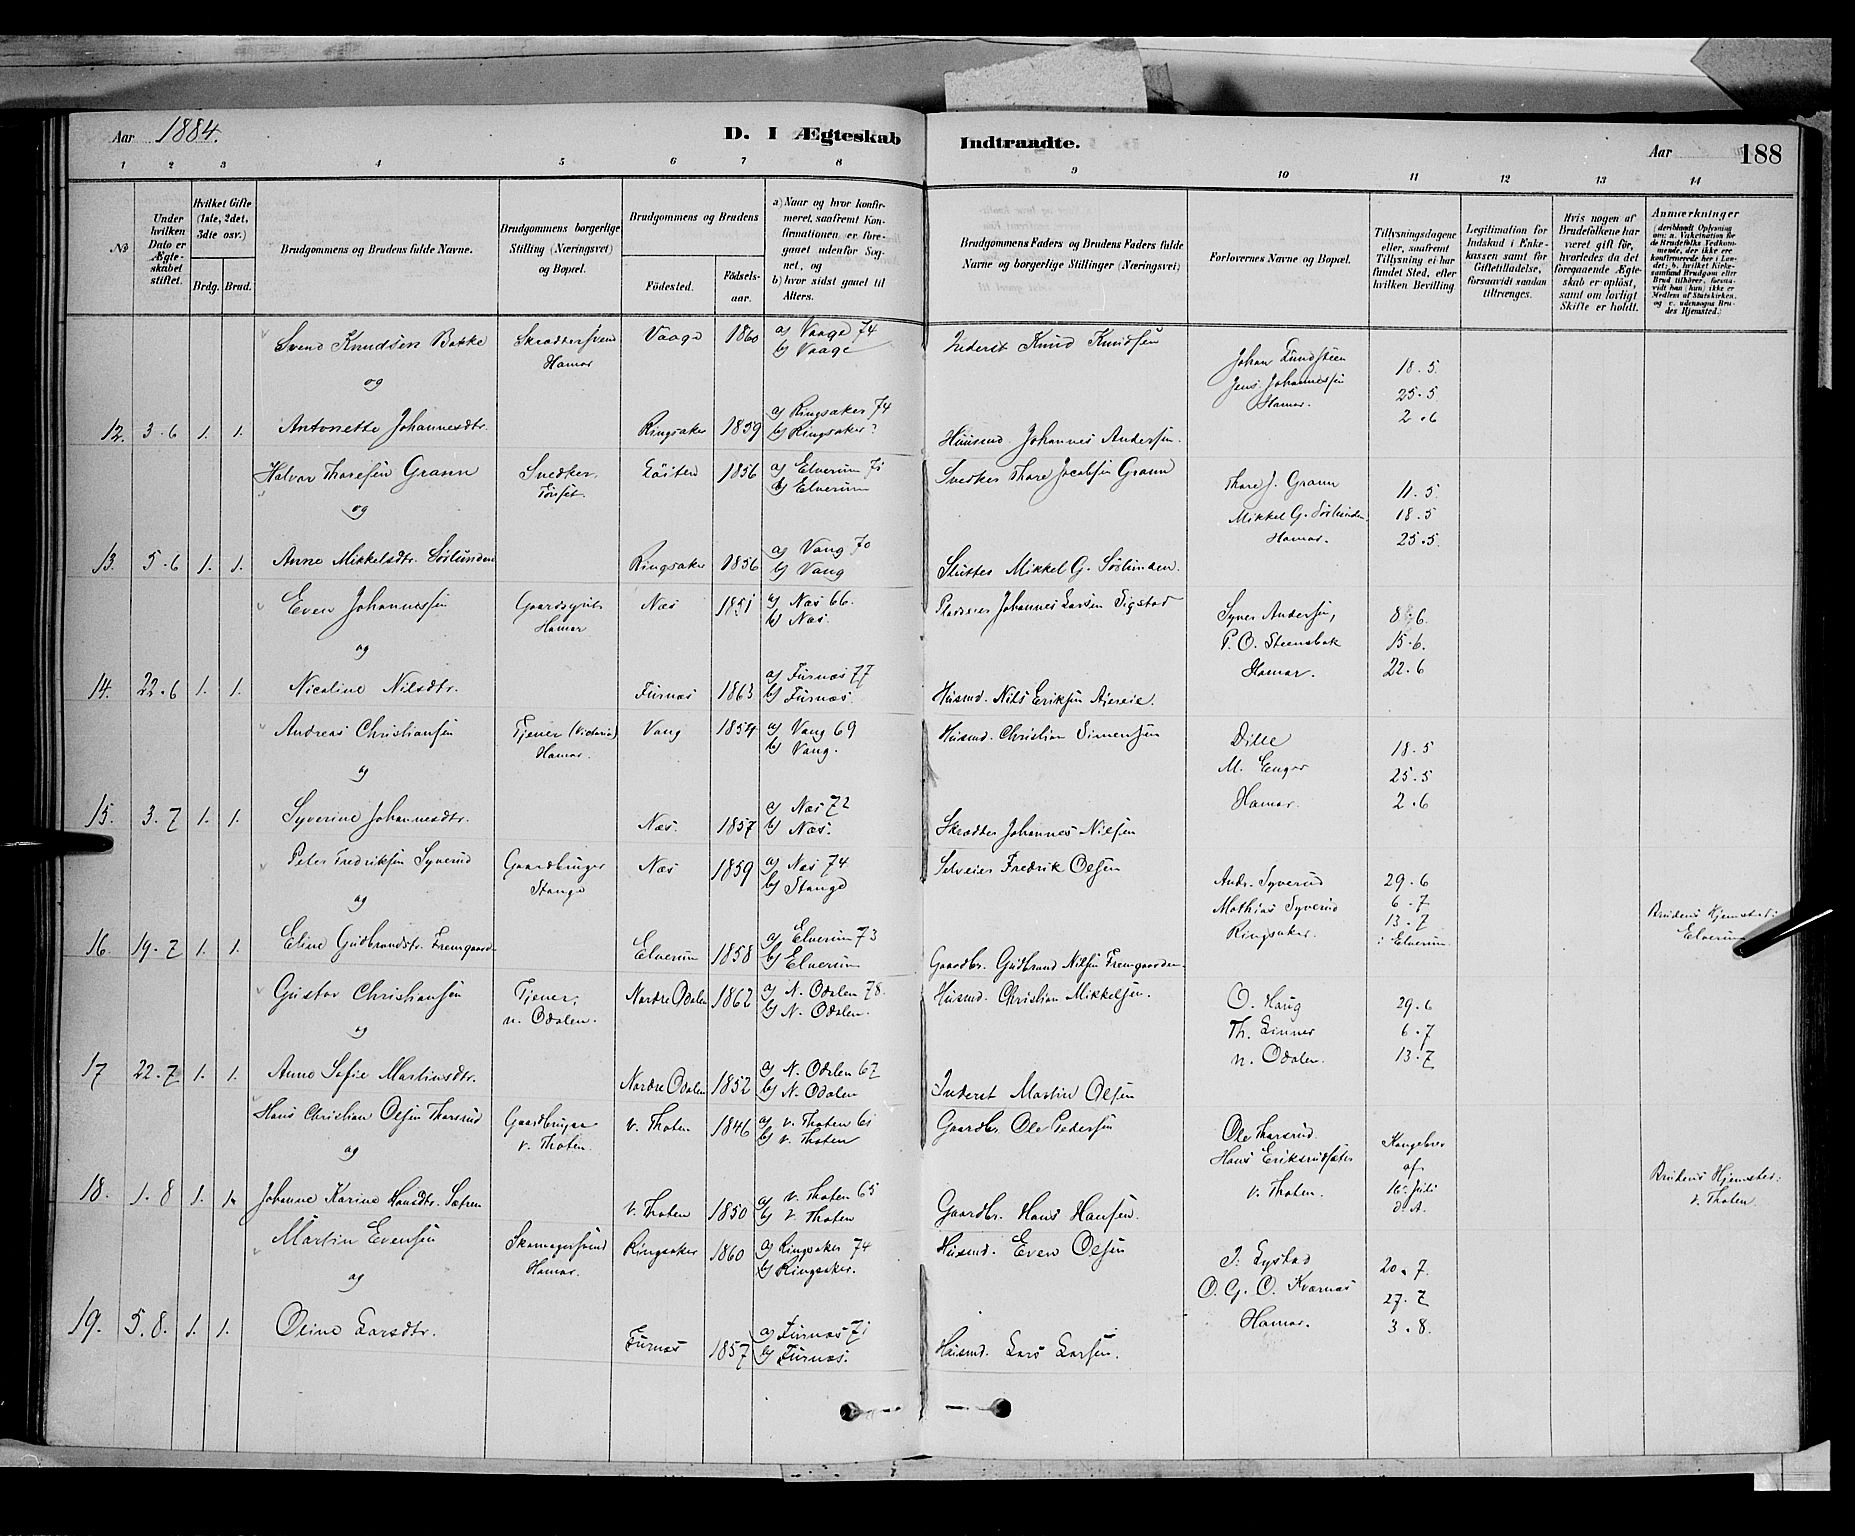 Aar 1884.
D. I Ægteskab Indtraadte.
Aar 188
1 2 3 4 5 6 7 8 9 10 11 12 13 14
No
Under hvilken Dato er Ægteskabet stiftet.
Hvilket Gifte (1ste, 2det, 3dte osv.)
Brdg. Brud.
Brudgommens og Brudens fulde Navne.
Brudgommens borgerlige Stilling (Næringsvei) og Bopæl.
Brudgommens og Brudens
Fødested.
Fødselsaar.
a) Naar og hvor konfirmeret, saafremt Konfirmationen er foregaaet udenfor Sognet, og
b) hvor sidst gaaet til Alters.
Brudgommens Faders og Brudens Faders fulde Navne og borgerlige Stillinger (Næringsvei)
Forlovernes Navne og Bopæl.
Tillysningsdagene eller, saafremt Tillysning ei har fundet Sted, efter hvilken Bevilling
Legitimation for Indskud i Enkekassen samt for Giftetilladelse, forsaavidt saadan tiltrænges.
Hvis nogen af Brudefolkene har været gift før, hvorledes da det foregaaende Ægteskab er opløst, samt om lovligt Skifte er holdt.
Anmærkninger (deriblandt Oplysning om: a. Vaksination for de Brudefolks Vedkommende, der ikke ere konfirmerede her i Landet; b. hvilket Kirkesamfund Brudgom eller Brud tilhører, forsaavidt han (hun) ikke er Medlem af Statskirken, og c. udensogns Brudes Hjemsted.)
Svend Knudsen Bakke Skrædersvend Hamar Vaage 1860 a) Vaage 74 b) Vaage Inderst Knud Knudsen
og
Johan Lundsteen 18.5.
Jens Johannesen 25.5
Hamar. 2.6
12. 3.6 1. 1. Antonette Johannesdtr. Ringsaker 1859 a) Ringsaker 74 b) Ringsaker Huusmd. Johannes Andersen.
Halvor Thoresen Grann Snedker, Løiten 1856 a) Elverum 71 b) Elverum Snedker Thore Jacobsen Grann
og
Thore J. Grann 11.5.
Mikkel G. Sørlunden 18.5
Hamar. 25.5.
13. 5.6 1. 1. Anne Mikkelsdtr. Sørlunden Ringsaker 1856 a) Vang 70 b) Vang Mikkel G. Sørlunden.
Even Johannesen Gaardsgut Hamar Næs 1851 a) Næs 66. b) Næs. Johannes Larsen Sigstad
og
Syver Andersen, 8.6.
P. O. Steensbak 15.6.
Hamar. 22.6
14. 22.6 1. 1. Nicoline Nilsdtr. Furnæs 1863 a) Furnæs 77 b) Furnæs. Husmd. Nils Eriksen
Andreas Christiansen Tjener (Victoria) Hamar. Vang 1854 a) Vang 69 b) Vang. Husmd. Christian Simensen
og
Dille 18.5
M. Enger 25.5
Hamar. 2.6
15. 3.7 1. 1. Syverine Johannesdtr. Næs. 1857 a) Næs 72 b) Næs. Skrædder Johannes Nielsen
Peter Fredriksen Syverud Gaardbruger Stange Næs 1859 a) Næs 74 b) Stange Selveier Fredrik Olsen
og
Andr. Syverud 29.6
Mathias Syverud 6.7
Ringsaker. 13.7 i Elverum.
Brudens Hjemsted: Elverum
16. 19.7 1. 1. Eline Gudbrandsdtr. Fremgaard Elverum 1858 a) Elverum 73 b) Elverum Gaardbr. Gudbrand Nilsen Fremgaarden
Gustav Christiansen Tjener, n. Odalen. Nordre Odalen 1862 a) N. Odalen 78. b) N. Odalen. Husmd. Christian Mikkelsen.
og
O. Haug 29.6
Th. Linner 6.7
n. Odalen. 13.7
17 22.7 1. 1. Anne Sofie Martinsdtr. Nordre Odalen 1852 a) N. Odalen 67 b) N. Odalen Inderst Martin Olsen
Hans Christian Olsen Thorsrud Gaardbruger v. Thoten. v. Thoten 1846 a) v. Thoten 61 b) v. Thoten Gaardbr. Ole Pedersen
og
Ole Thorsrud. Kongebrev
Hans Eriksrudsæter af
v. Thoten. 16. Juli d. A.
Brudens Hjemsted: v. Thoten.
18. 1.8 1. 1. Johanne Karine Hansdtr. Sætren v. Thoten 1850 a) v. Thoten 65 b) v. Thoten Gaardbr. Hans Hansen.
Martin Evensen Skomagersvend Hamar. Ringsaker 1860 a) Ringsaker 74 b) Ringsaker. Husmd. Even Olsen
og
J. Lystad 20.7.
O. G. O. Kværnæs 27.7
Hamar. 3.8.
19. 5.8. 1. 1. Oline Larsdtr. Furnæs 1857 a) Furnæs 71 b) Furnæs. Husmd. Lars Larsen.